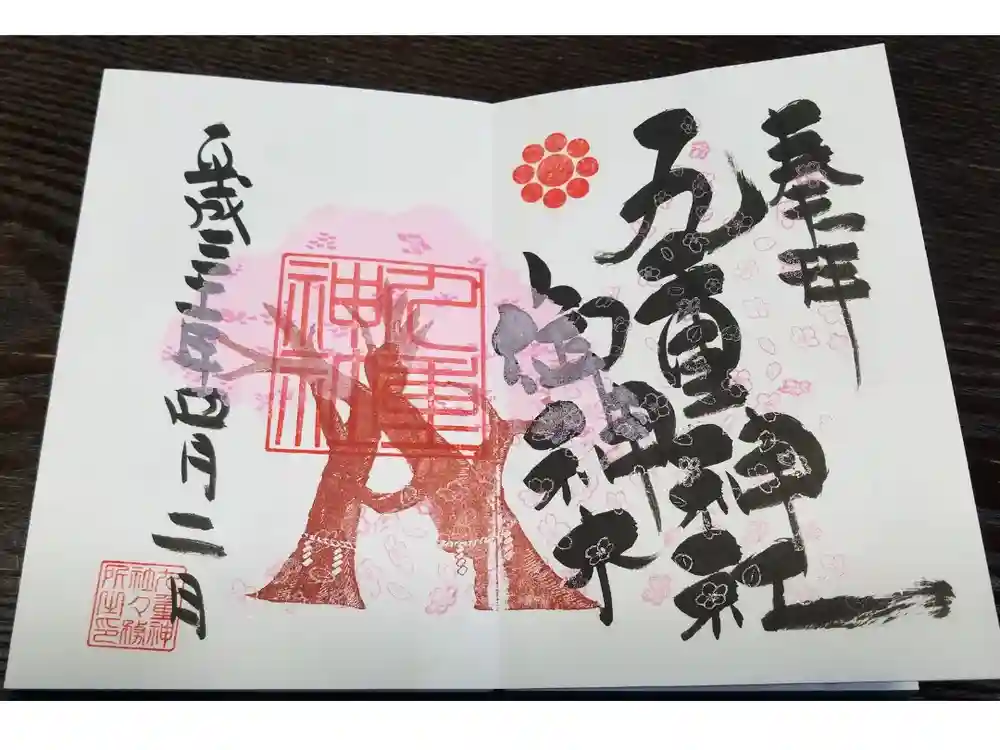 奉拝
九重神社
御神木
九重
神社
平成三十
九重神
社々務
所之印